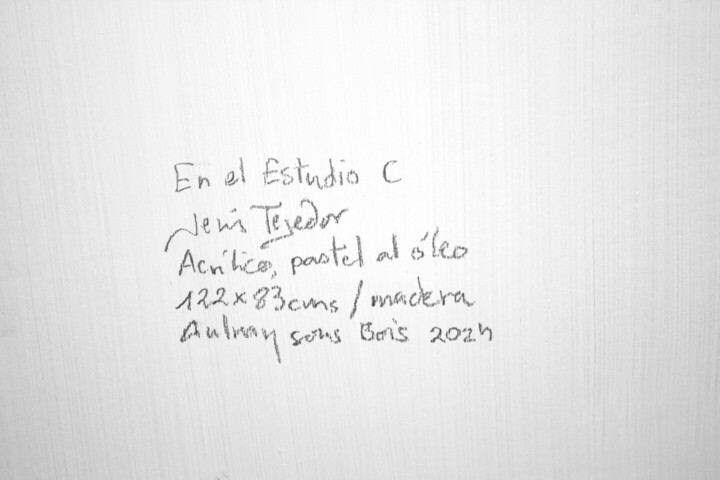 En el Estudio C
Jenis Tejedor
Acrílico, pastel al óleo
122x83cms / madera
Aulnay sous Bois 2024